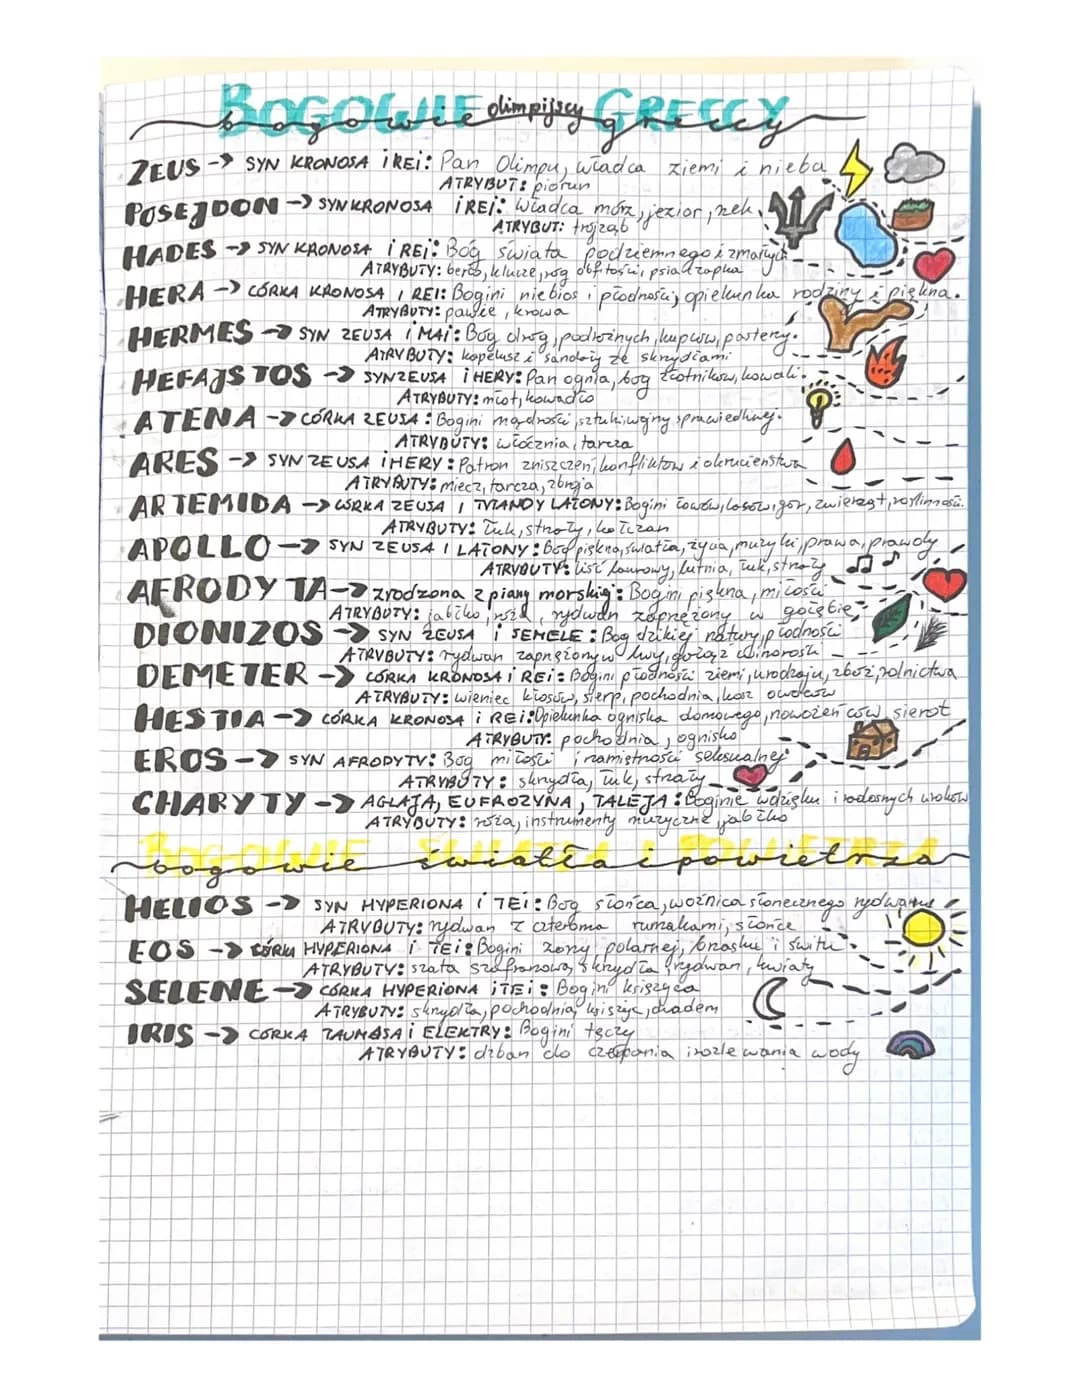 BOGOWIE olimpijscy GRECCY
bogowie greccy
ZEUS -> SYN KRONOSA i REi: Pan Olimpu, władca ziemi i nieba
ATRYBUT: piorun
POSEJDON -> SYN KRONOSA i REi: Władca mórz, jezior, rzek.
ATRYBUT: trójząb
HADES -> SYN KRONOSA i REi: Bóg świata podziemnego i zmarłych
ATRYBUTY: berło, klucze, róg obfitości, psia czapka
HERA -> CÓRKA KRONOSA I REI: Bogini niebios i płodności, opiekunka rodziny i piękna.
ATRYBUTY: pawie, krowa
HERMES -> SYN ZEUSA i MAi: Bóg dróg, podróżnych, kupców, pasterzy.
ATRYBUTY: kapelusz i sandały ze skrzydłami
HEFAJSTOS -> SYN ZEUSA i HERY: Pan ognia, bóg złotników, kowali.
ATRYBUTY: młot, kowadło
ATENA -> CÓRKA ZEUSA: Bogini mądrości, sztuki, wojny sprawiedliwej.
ATRYBUTY: włócznia, tarcza
ARES -> SYN ZEUSA i HERY: Patron zniszczeń, konfliktów i okrucieństwa
ATRYBUTY: miecz, tarcza, zbroja
ARTEMIDA -> CÓRKA ZEUSA I TYTANIDY LATONY: Bogini łowów, lasów, gór, zwierząt, roślinności.
ATRYBUTY: łuk, strzały, kołczan
APOLLO -> SYN ZEUSA I LATONY: Bóg piękna, światła, życia, muzyki, prawa, prawdy
ATRYBUTY: liść laurowy, lutnia, łuk, strzały
AFRODYTA -> zrodzona z piany morskiej: Bogini piękna, miłości
ATRYBUTY: jabłko, róża, rydwan zaprzężony w gołębie
DIONIZOS -> SYN ZEUSA i SEMELE: Bóg dzikiej natury, płodności
ATRYBUTY: rydwan zaprzężony w lwy, gałąź winorośli
DEMETER -> CÓRKA KRONOSA i REi: Bogini płodności ziemi, urodzaju, zbóż, rolnictwa
ATRYBUTY: wieniec kłosów, sierp, pochodnia, kosz owoców
HESTIA -> CÓRKA KRONOSA i REi: Opiekunka ogniska domowego, nowożeńców, sierot
ATRYBUTY: pochodnia, ognisko
EROS -> SYN AFRODYTY: Bóg miłości i namiętności seksualnej
ATRYBUTY: skrzydła, łuk, strzały
CHARYTY -> AGLAJA, EUFROZYNA, TALEJA: Boginie wdzięku i radosnych uroków
ATRYBUTY: róża, instrumenty muzyczne, jabłko
BOGOWIE ŚWIATŁA I POWIETRZA
bogowie światła i powietrza
HELIOS -> SYN HYPERIONA i TEi: Bóg słońca, woźnica słonecznego rydwanu
ATRYBUTY: rydwan z czteroma rumakami, słońce
EOS -> CÓRKA HYPERIONA i TEi: Bogini zorzy polarnej, brzasku i świtu.
ATRYBUTY: szata szafranowa, skrzydła, rydwan, kwiaty
SELENE -> CÓRKA HYPERIONA i TEi: Bogini księżyca
ATRYBUTY: skrzydła, pochodnia, księżyc, diadem
IRIS -> CÓRKA TAUMASA i ELEKTRY: Bogini tęczy
ATRYBUTY: dzban do czerpania i rozlewania wody